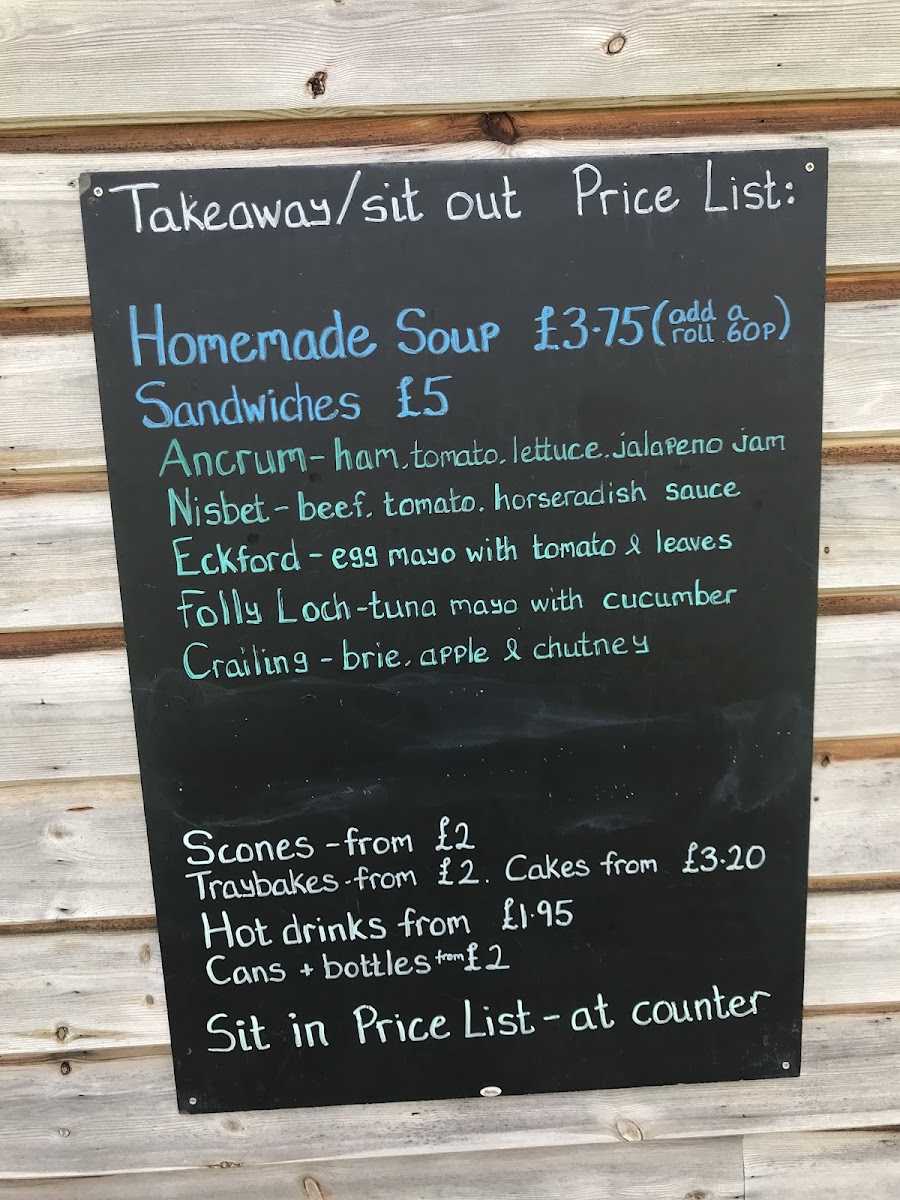 Takeaway/sit out Price List:
Homemade Soup £3.75 (add a roll 60p)
Sandwiches £5
Ancrum - ham, tomato, lettuce, jalapeno jam
Nisbet - beef, tomato, horseradish sauce
Eckford - egg mayo with tomato & leaves
Folly Loch - tuna mayo with cucumber
Crailing - brie, apple & chutney
Scones - from £2
Traybakes - from £2. Cakes from £3.20
Hot drinks from £1.95
Cans + bottles from £2
Sit in Price List - at counter